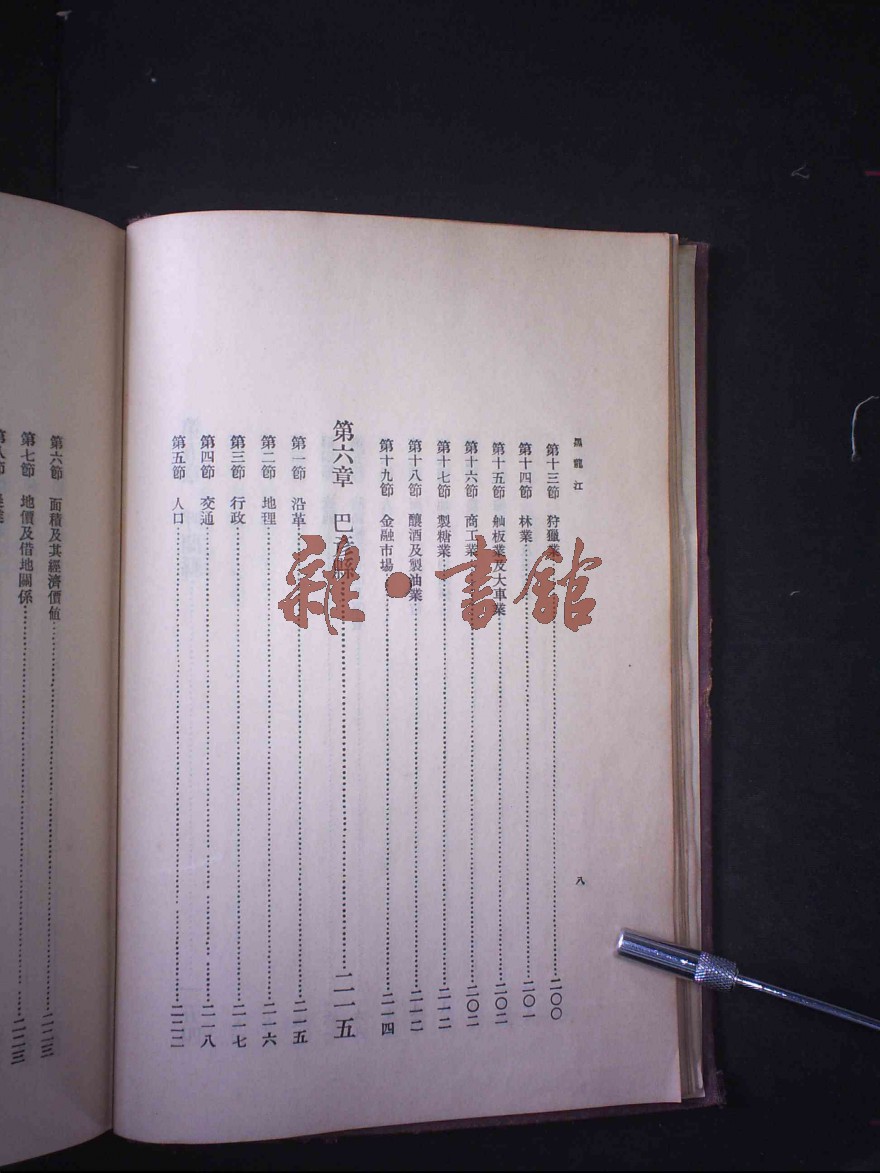 黑龍江
八
第十三節 狩獵業 二〇〇
第十四節 林業 二〇一
第十五節 舢板業及大車業 二〇二
第十六節 商工業 二〇二
第十七節 製糖業 二一一
第十八節 釀酒及製油業 二一二
第十九節 金融市場 二一四
第六章 巴彥縣 二一五
第一節 沿革 二一五
第二節 地理 二一六
第三節 行政 二一七
第四節 交通 二一八
第五節 人口 二二二
第六節 面積及其經濟價値 二二三
第七節 地價及借地關係 二二三
雜·書館